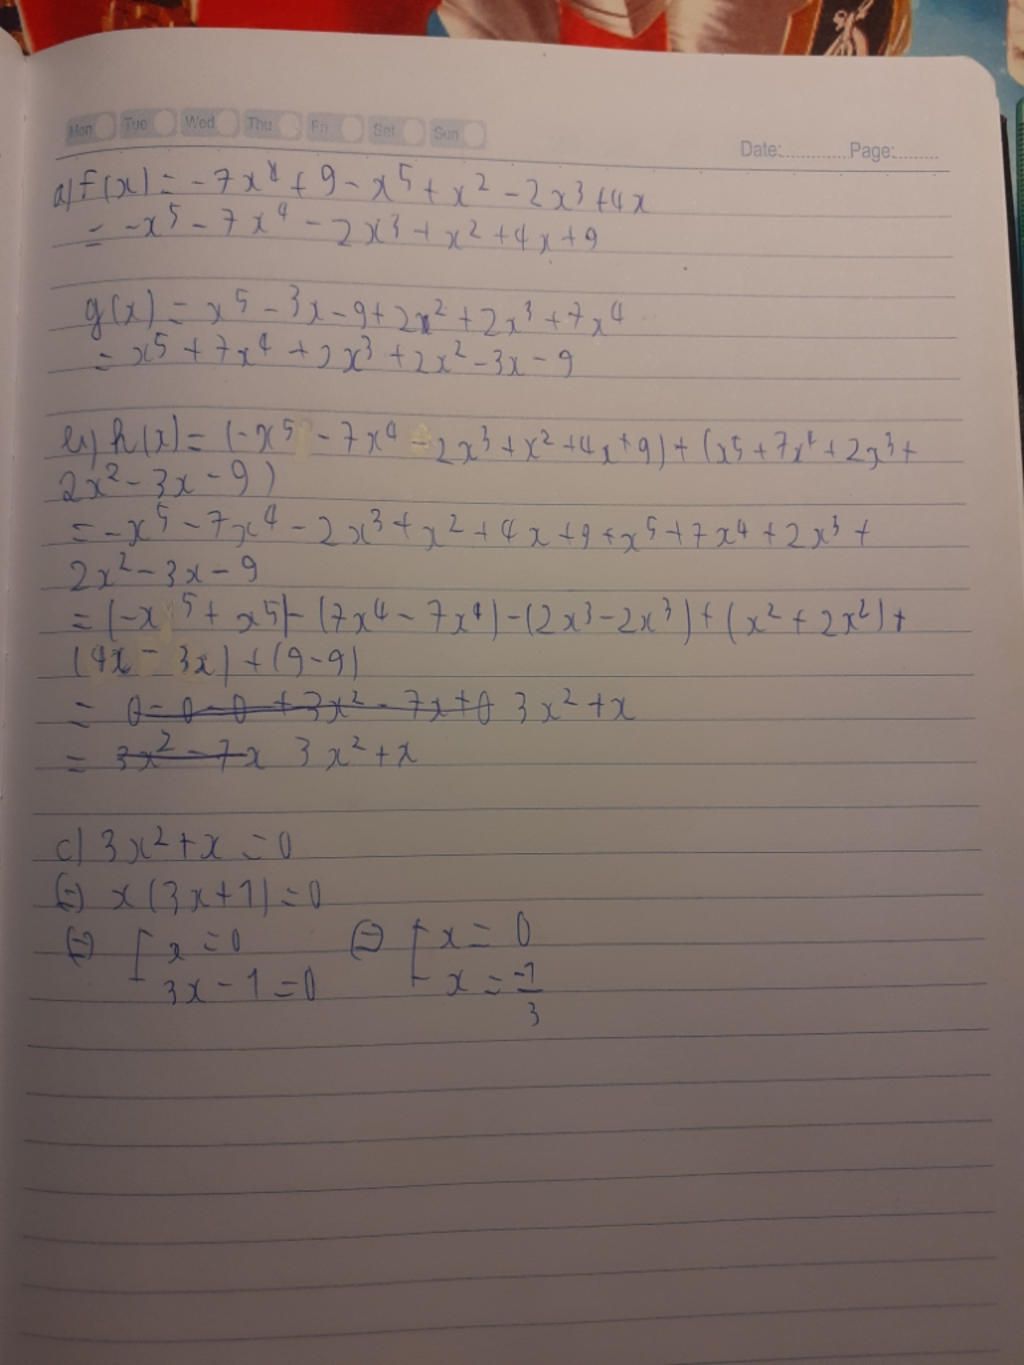 Mon Tue Wed Thu Fri Sat Sun
Date:............Page:........
a) f(x) = -7x⁴ + 9 - x⁵ + x² - 2x³ + 4x
= -x⁵ - 7x⁴ - 2x³ + x² + 4x + 9
g(x) = x⁵ - 3x - 9 + 2x² + 2x³ + 7x⁴
= x⁵ + 7x⁴ + 2x³ + 2x² - 3x - 9
b) h(x) = (-x⁵ - 7x⁴ - 2x³ + x² + 4x + 9) + (x⁵ + 7x⁴ + 2x³ +
2x² - 3x - 9)
= -x⁵ - 7x⁴ - 2x³ + x² + 4x + 9 + x⁵ + 7x⁴ + 2x³ +
2x² - 3x - 9
= (-x⁵ + x⁵) - (7x⁴ - 7x⁴) - (2x³ - 2x³) + (x² + 2x²) +
(4x - 3x) + (9 - 9)
= 0 - 0 - 0 + 3x² - 7x + 0 3x² + x
= 3x² - 7x 3x² + x
c) 3x² + x = 0
(=) x(3x + 1) = 0
(=) [ x = 0 (=) [ x = 0
3x - 1 = 0 x = -1/3